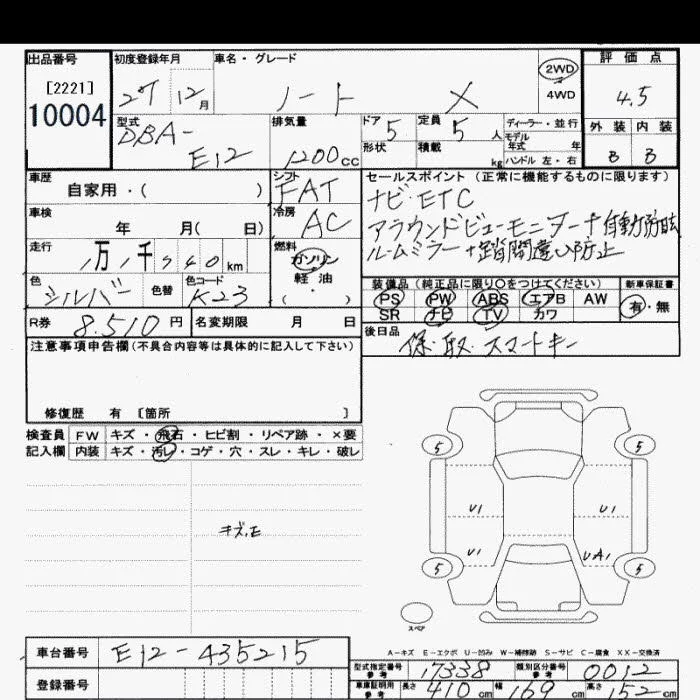 出品番号 初度登録年月 車名・グレード 2WD 評価点
[2221] 4WD
10004 27 12月 ノート X 4.5
型式 排気量 ドア 定員 ディーラー・並行 外装 内装
DBA- 5 5人 モデル年式 年
E12 1200cc 形状 積載 kg ハンドル 左・右 B B
車歴 シフト セールスポイント (正常に機能するものに限ります)
自家用・( ) FAT ナビ・ETC
車検 冷房 アラウンドビューモニター+自動防眩
年 月( 日) AC ルームミラー+踏間違い防止
走行 燃料
1万1千540km ガソリン 装備品 (純正品に限り○をつけてください) 新車保証書
色 色替 色コード 軽油 PS PW ABS エアB AW 有・無
シルバー K23 ( ・ ) SR ナビ TV カワ
R券 8.510円 名変期限 月 日 後日品
保・取・スマートキー
注意事項申告欄(不具合内容等は具体的に記入して下さい)
修復歴 有 [箇所 ]
検査員 FW キズ・飛石・ヒビ割・リペア跡・×要
記入欄 内装 キズ・汚レ・コゲ・穴・スレ・キレ・破レ
5 5
U1 U1
キズ,E
U1 UA1
5 5
スペア
A-キズ E-エクボ U-凹み W-補修跡 S-サビ C-腐食 XX-交換済
車台番号 E12-435215
型式指定番号 参考 17338 類別区分番号 参考 0012
登録番号
車庫証明用 参考 長さ 410cm 幅 169cm 高さ 152cm